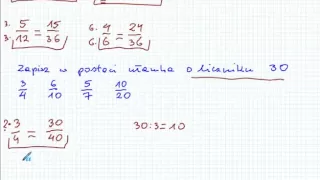 3. 5/12 = 15/36   6. 4/6 = 24/36
3.   6.
Zapisz w postaci ułamka o liczniku 30
3/4   6/10   5/7   10/20
?· 3/4 = 30/40   30:3=10